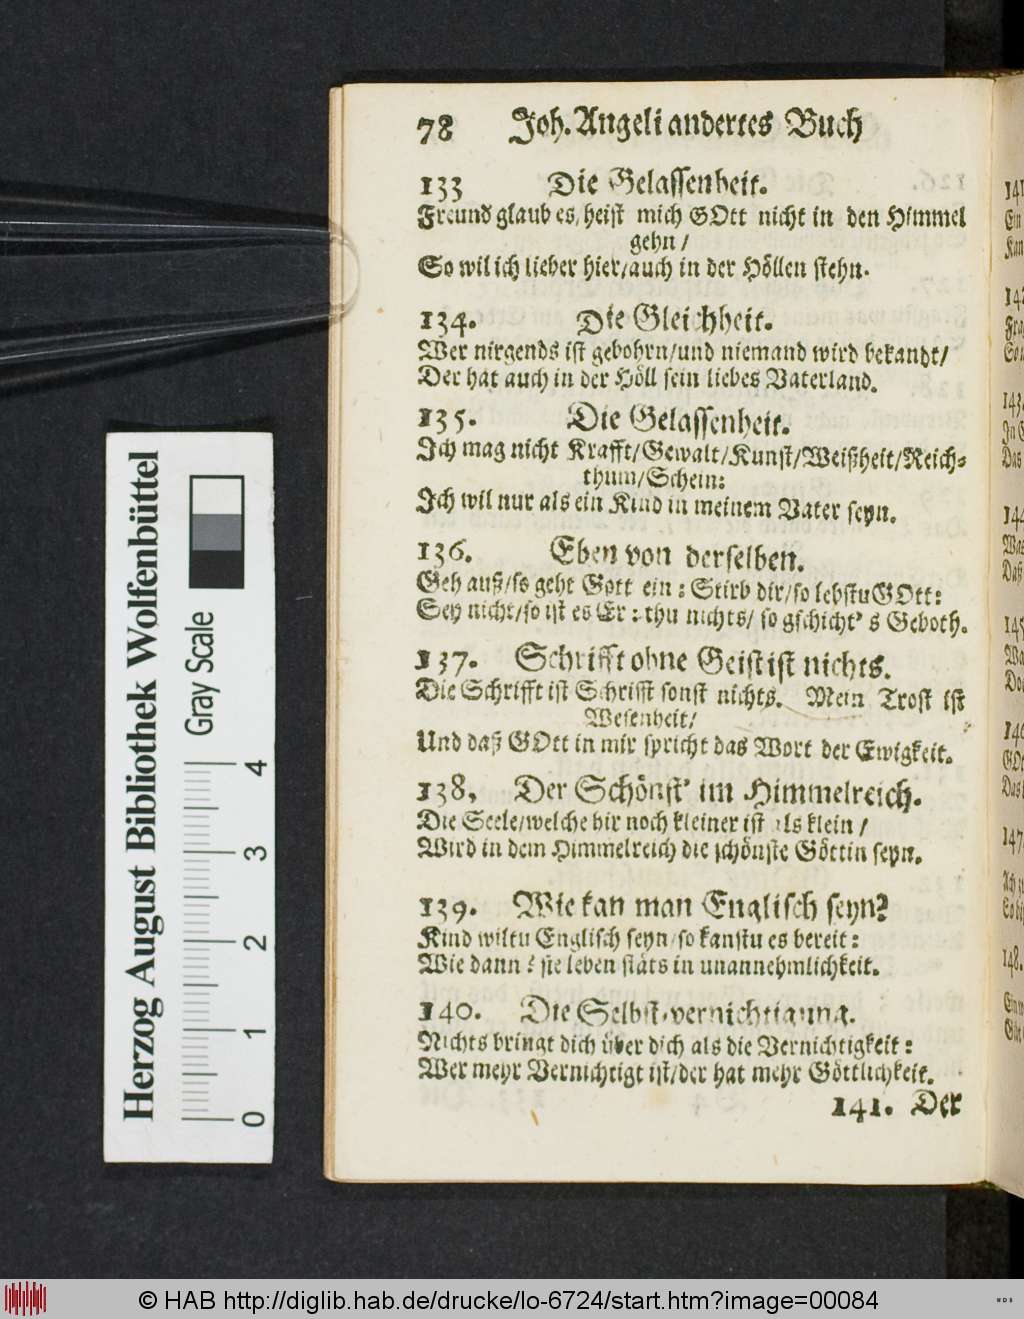 78 Joh. Angeli andertes Buch
133 Die Gelassenheit.
Freund glaub es/heist mich GOtt nicht in den Himmel
gehn/
So wil ich lieber hier/auch in der Höllen stehn.
134. Die Gleichheit.
Wer nirgends ist gebohrn/und niemand wird bekandt/
Der hat auch in der Höll sein liebes Vaterland.
135. Die Gelassenheit.
Ich mag nicht Krafft/Gewalt/Kunst/Weißheit/Reich-
thum/Schein:
Ich wil nur als ein Kind in meinem Vater seyn.
136. Eben von derselben.
Geh auß/so geht Gott ein: Stirb dir/so lebstu GOtt:
Sey nicht/so ist es Er: thu nichts/ so gschicht's Geboth.
137. Schrifft ohne Geist ist nichts.
Die Schrifft ist Schrifft sonst nichts. Mein Trost ist
Wesenheit/
Und daß GOtt in mir spricht das Wort der Ewigkeit.
138, Der Schönst' im Himmelreich.
Die Seele/welche hir noch kleiner ist als klein/
Wird in dem Himmelreich die schönste Göttin seyn.
139. Wie kan man Englisch seyn?
Kind wiltu Englisch seyn/so kanstu es bereit:
Wie dann? sie leben stäts in unannehmlichkeit.
140. Die Selbst-vernichtigung.
Nichts bringt dich über dich als die Vernichtigkeit:
Wer mehr Vernichtigt ist/der hat mehr Göttlichkeit.
141. Der
Herzog August Bibliothek Wolfenbüttel
Gray Scale
0 1 2 3 4
141
Ein
Kan
143.
Das
144
Was
Daß
145
146
GOt
Das
147.
148.
© HAB http://diglib.hab.de/drucke/lo-6724/start.htm?image=00084